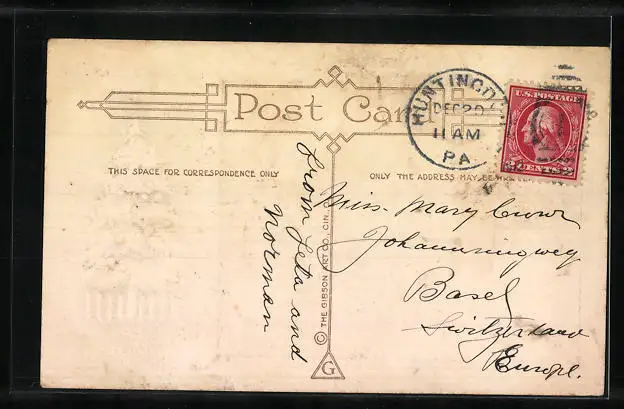 Post Card
HUNTINGDON
DEC 20
11 AM
PA.
U.S. POSTAGE
2 CENTS 2
THIS SPACE FOR CORRESPONDENCE ONLY
ONLY THE ADDRESS MAY BE
from Leta and
Norman
© THE GIBSON ART CO., CIN.
G
Miss. Mary
Johanniringweg
Basel
Switzerland
Europe.